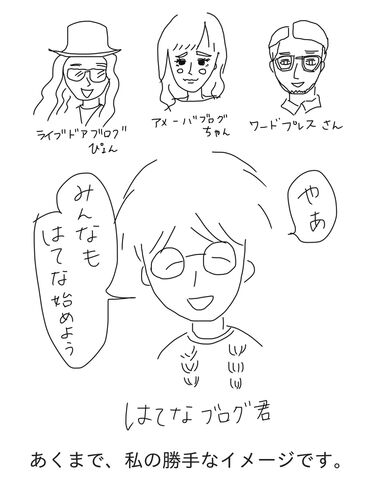 ライブドアブログ
ぴょん
アメーバブログ
ちゃん
ワードプレスさん
やあ
みんなも
はてな始めよう
はてなブログ君
あくまで、私の勝手なイメージです。